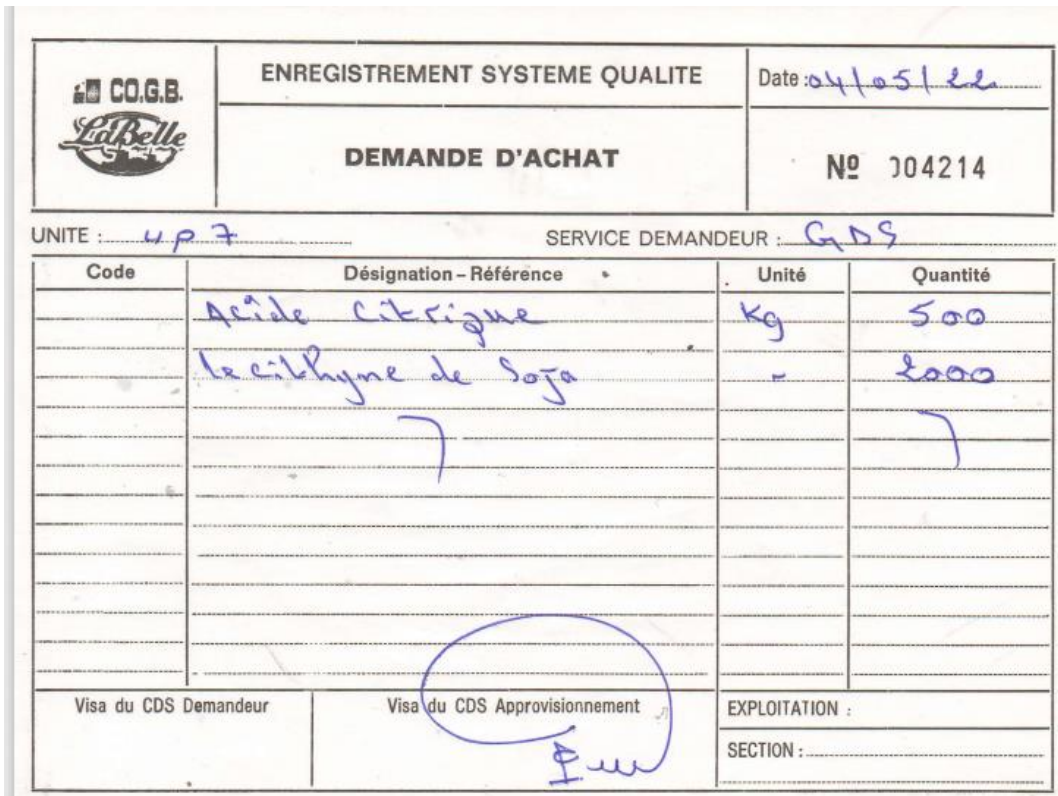 CO.G.B.
LaBelle
ENREGISTREMENT SYSTEME QUALITE
DEMANDE D'ACHAT
Date : 04/05/22
Nº 004214
UNITE : up7
SERVICE DEMANDEUR : GDS
Code Désignation – Référence Unité Quantité
Acide Citrique Kg 500
lecithyne de Soja - 2000
Visa du CDS Demandeur
Visa du CDS Approvisionnement
EXPLOITATION :
SECTION :